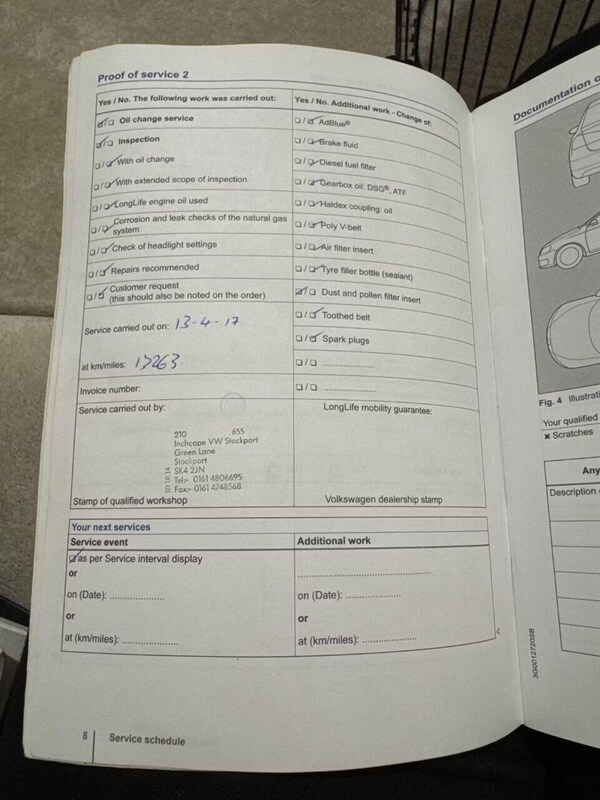 Proof of service 2
Yes / No. The following work was carried out:
☑/☐ Oil change service
☑/☐ Inspection
☐/☑ With oil change
☐/☑ With extended scope of inspection
☐/☑ LongLife engine oil used
☐/☑ Corrosion and leak checks of the natural gas
system
☐/☑ Check of headlight settings
☐/☑ Repairs recommended
☐/☑ Customer request
(this should also be noted on the order)
Service carried out on: 13-4-17
at km/miles: 17263.
Invoice number:
Yes / No. Additional work - Change of:
☐/☑ AdBlue®
☐/☑ Brake fluid
☐/☑ Diesel fuel filter
☐/☑ Gearbox oil: DSG®, ATF
☐/☑ Haldex coupling: oil
☐/☑ Poly V-belt
☐/☑ Air filter insert
☐/☑ Tyre filler bottle (sealant)
☑/☐ Dust and pollen filter insert
☐/☑ Toothed belt
☐/☑ Spark plugs
☐/☐ ....................
☐/☐ ....................
Service carried out by:
210 655
Inchcape VW Stockport
Green Lane
Stockport
SK4 2JN
Tel:- 0161 4806695
Fax:- 0161 4748568
Stamp of qualified workshop
LongLife mobility guarantee:
Volkswagen dealership stamp
Your next services
Service event
☑ as per Service interval display
or
on (Date): ....................
or
at (km/miles): ....................
Additional work
........................................
on (Date): ....................
or
at (km/miles): ....................
8 Service schedule
Documentation o
Fig. 4 Illustrati
Your qualified
× Scratches
Any
Description
3G0012720SB